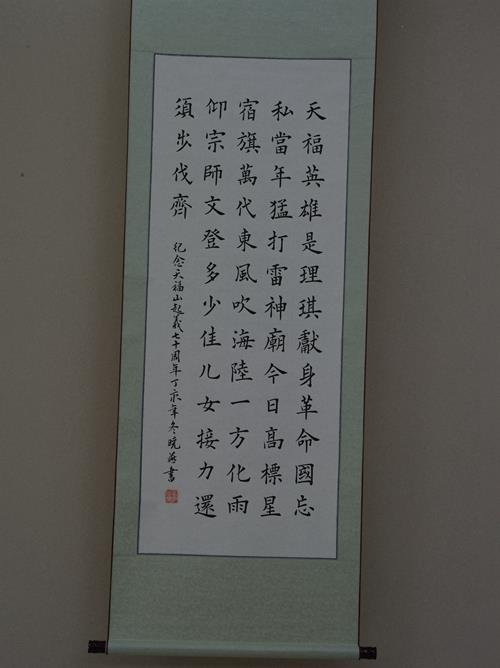 天福英雄是理琪獻身革命國忘
私當年猛打雷神廟今日高標星
宿旗萬代東風吹海陸一方化雨
仰宗師文登多少佳儿女接力還
須步伐齊
纪念天福山起義七十周年丁亥年冬晓海書